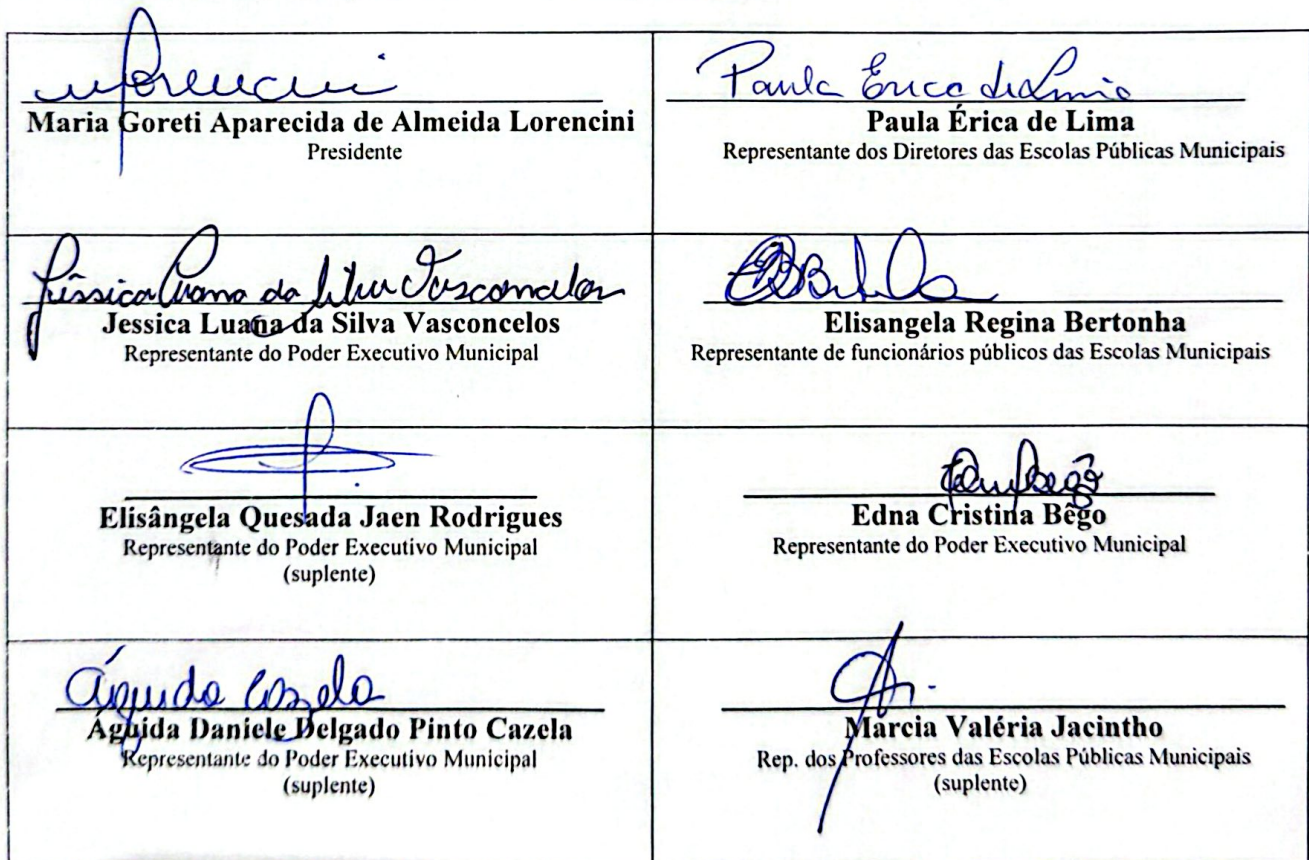 Maria Goreti Aparecida de Almeida Lorencini
Presidente
Paula Erica de Lima
Paula Érica de Lima
Representante dos Diretores das Escolas Públicas Municipais
Jéssica Luana da Silva Vasconcelos
Jessica Luana da Silva Vasconcelos
Representante do Poder Executivo Municipal
Elisangela Regina Bertonha
Representante de funcionários públicos das Escolas Municipais
Elisângela Quesada Jaen Rodrigues
Representante do Poder Executivo Municipal
(suplente)
Edna Cristina Bêgo
Representante do Poder Executivo Municipal
Águida Cazela
Águida Daniele Delgado Pinto Cazela
Representante do Poder Executivo Municipal
(suplente)
Marcia Valéria Jacintho
Rep. dos Professores das Escolas Públicas Municipais
(suplente)